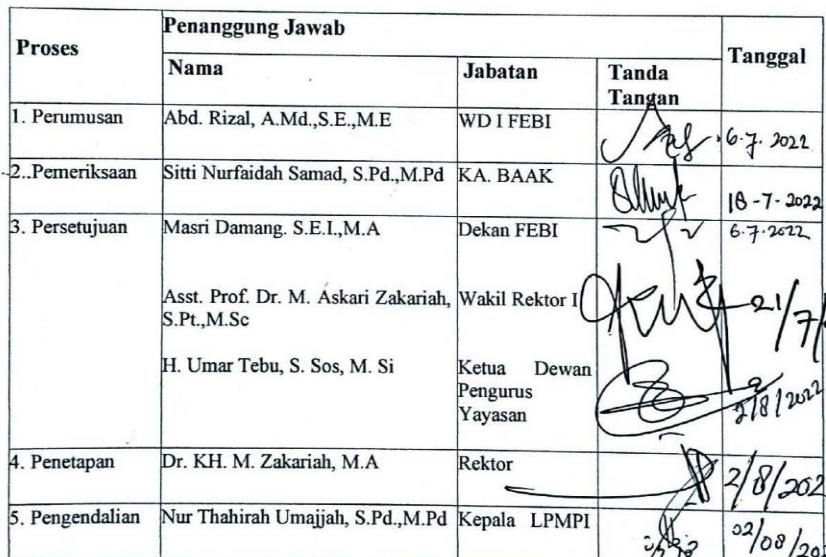 Proses
Penanggung Jawab
Tanggal
Nama
Jabatan
Tanda
Tangan
1. Perumusan
Abd. Rizal, A.Md.,S.E.,M.E
WD I FEBI
6.7.2022
2..Pemeriksaan
Sitti Nurfaidah Samad, S.Pd.,M.Pd
KA. BAAK
18-7-2022
3. Persetujuan
Masri Damang. S.E.I.,M.A
Dekan FEBI
6.7.2022
Asst. Prof. Dr. M. Askari Zakariah,
S.Pt.,M.Sc
Wakil Rektor I
21/7/
H. Umar Tebu, S. Sos, M. Si
Ketua Dewan
Pengurus
Yayasan
2/8/2022
4. Penetapan
Dr. KH. M. Zakariah, M.A
Rektor
2/8/202
5. Pengendalian
Nur Thahirah Umajjah, S.Pd.,M.Pd
Kepala LPMPI
02/08/20